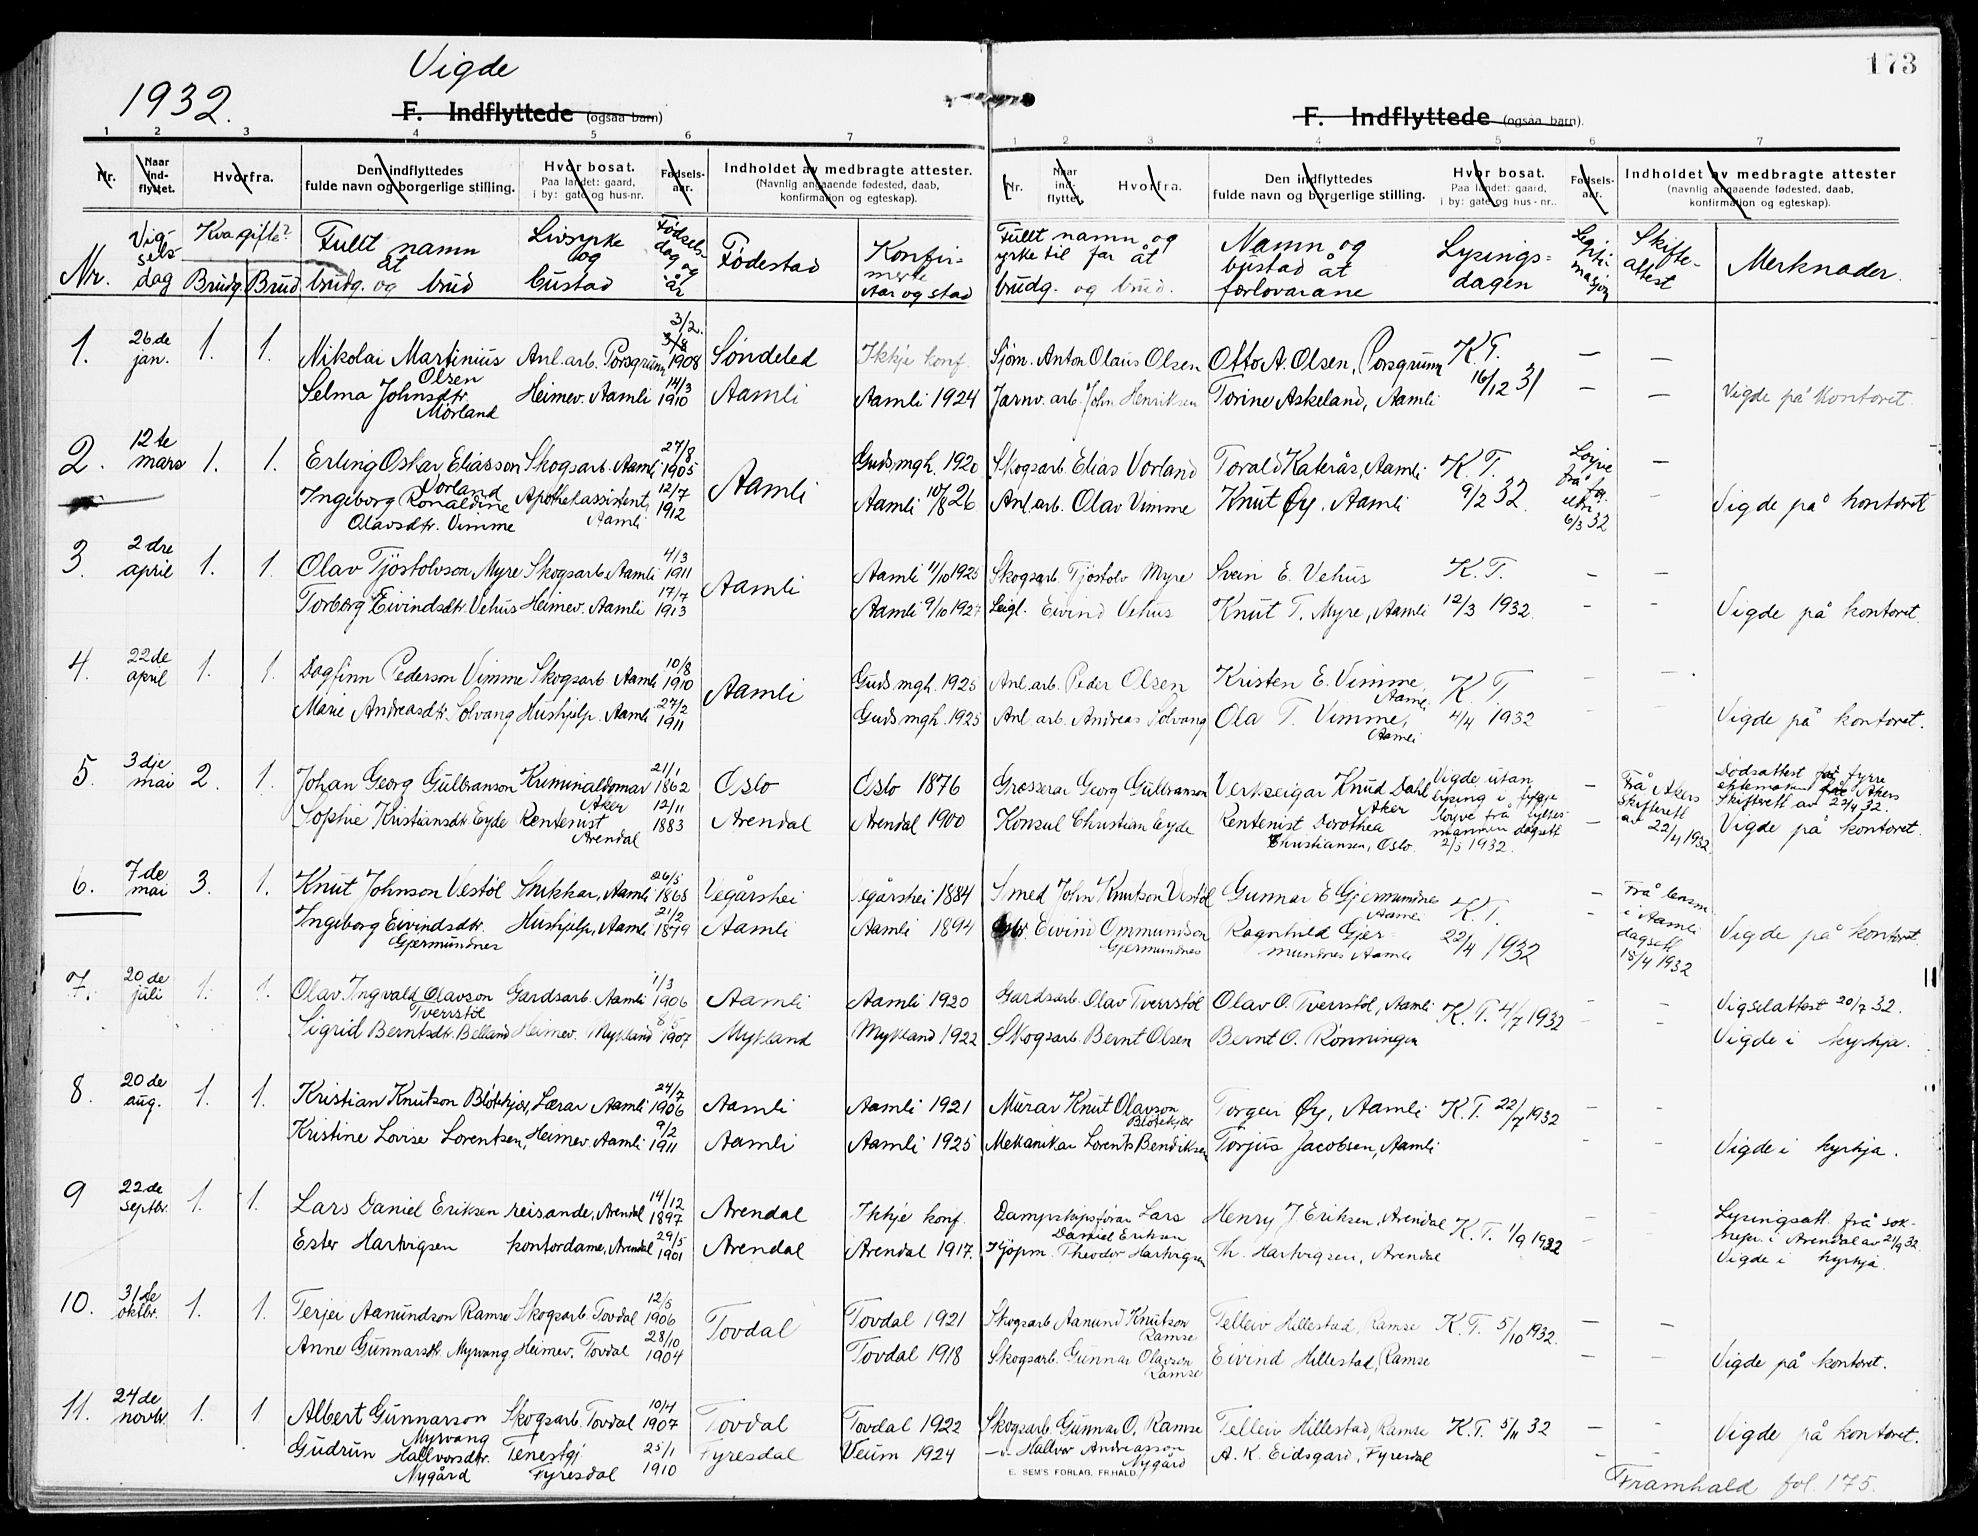 173
Vigde
1932.
F. Indflyttede (ogsaa barn)
F. Indflyttede (ogsaa barn).
1 2 3 4 5 6 7
1 2 3 4 5 6 7
Nr. Naar ind-flyttet. Hvorfra. Den indflyttedes fulde navn og borgerlige stilling. Hvor bosat. Paa landet: gaard, i by: gate og hus-nr. Fødsels-aar. Indholdet av medbragte attester. (Navnlig angaaende fødested, daab, konfirmation og egteskap).
Nr. Naar ind-flyttet. Hvorfra. Den indflyttedes fulde navn og borgerlige stilling. Hvor bosat. Paa landet: gaard, i by: gate og hus-nr.. Fødsels-aar. Indholdet av medbragte attester (navnlig angaaende fødested, daab, konfirmation og egteskap).
Nr. Vigsels dag Kvagifte? Brudg. Brud Fullt namn åt brudg. og brud Livsyrke og bustad Fødsels-dag og år Fødestad Konfirmerte Aar og stad
Fullt namn og yrke til far åt brudg. og brud. Namn og bustad åt forlovarane Lysings-dagen Legitimasjon Skifte-attest Merknader.
1. 26de jan. 1. 1. Nikolai Martinius Olsen Anl.arb. Porsgrunn 3/2. 3/8 1908 Søndeled Ikkje konf. Sjøm. Anton Olaus Olsen Otto A. Olsen, Porsgrunn K.T. 16/12 31 — —
Selma Johnsdtr. Mörland Heimev. Aamli 14/3 1910 Aamli Aamli 1924 Jarnv. arb. John Henriksen Torine Askeland, Aamli — — Vigde på kontoret.
2. 12te mars 1. 1. Erling Oskar Eliasson Vorland Skogsarb. Aamli 27/8 1905 Aamli Guds mgh. 1920 Skogsarb. Elias Vorland Torald Katerås, Aamli K.T. 9/2 32. Løyve frå 6/3 32 —
Ingeborg Ronaldine Olavsdtr. Vimme Apothekassistent, Aamli 12/7 1912 Aamli 10/8 26 Anl.arb. Olav Vimme Knut Øy, Aamli — Vigde på kontoret
3. 2dre april 1. 1. Olav Tjöstolvson Myre Skogsarb. Aamli 4/3 1911 Aamli Aamli 11/10 1925 Skogsarb. Tjöstolv Myre Svein E. Vehus K.T. — —
Torborg Eivindsdtr. Vehus Heimev. Aamli 17/7 1913 Aamli 9/10 1927 Leigl. Eivind Vehus Knut T. Myre, Aamli 12/3 1932. — — Vigde på kontoret.
4. 22de april 1. 1. Dagfinn Pederson Vimme Skogsarb. Aamli 10/8 1910 Aamli Guds mgh. 1925 Anl.arb. Peder Olsen Kristen E. Vimme, Aamli K.T. — —
Marie Andreasdtr. Solvang Hushjelp. Aamli 27/2 1911 Guds mgh. 1925 Anl. arb. Andreas Solvang Ola T. Vimme, Aamli 4/4 1932 — — Vigde på kontoret.
5. 3dje mai 2. 1. Johan Georg Gulbranson Kriminaldomar Aker 21/1 1862 Oslo Oslo 1876 Grosserar Georg Gulbranson Verkseigar Knud Dahl Aker Vigde utan lysing i fylgje løyve frå fylkesmannen dagsett 2/5 1932. — Frå Akers Skifterett av 22/4 1932. Dødsattest fyrre ektemaken Akers Skifterett av 22/4 32.
Sophie Kristiansdtr. Eyde Rentenist Arendal 12/11 1883 Arendal Arendal 1900 Konsul Christian Eyde Rentenist Dorothea Christiansen, Oslo. — Vigde på kontoret.
6. 7de mai 3. 1. Knut Johnson Vestöl Snikkar, Aamli 26/5 1868 Vegårshei Vegårshei 1884 Smed John Knutson Vestöl Gunnar E Gjermundnes Aamli K.T. — Frå lensm. i Aamli dagsett 18/4 1932
Ingeborg Eivindsdtr. Gjermundnes Hushjelp, Aamli 21/2 1879 Aamli Aamli 1894 Eivind Ommundson Gjermundnes Ragnhild Gjermundnes Aamli 22/4 1932 — Vigde på kontoret.
7. 20de juli 1. 1. Olav Ingvald Olavson Tverrstöl Gardsarb. Aamli 1/3 1906 Aamli Aamli 1920 Gardsarb. Olav Tverrstöl Olav O. Tverrstöl, Aamli K.T. 4/7 1932 — — Vigselattest 20/7 32.
Sigrid Berntsdtr. Belland Heimev. Mykland 1907 Mykland Mykland 1922 Skogsarb. Bernt Olsen Bernt O. Rönningen — — Vigde i kyrkja.
8. 20de aug. 1. 1. Kristian Knutson Blötekjær, Lærar Aamli 24/7 1906 Aamli Aamli 1921 Murar Knut Olavson Blötekjær Torgeir Øy, Aamli K.T. 22/7 1932 — —
Kristine Lovise Lorentsen, Heimev. Aamli 9/2 1911 Aamli Aamli 1925 Mekanikar Lorents Bendiksen Torjus Jacobsen, Aamli — — Vigde i kyrkja.
9 22de septbr. 1. 1. Lars Daniel Eriksen reisande, Arendal 14/12 1897 Arendal Ikkje konf. Dampskipsförar Lars Daniel Eriksen Henry J. Eriksen, Arendal K.T. 1/9 1932 — — Lysingsatt. frå soknepr. i Arendal av 21/9 32.
Ester Hartvigsen kontordame, Arendal 29/5 1901 Arendal Arendal 1917. Kjøpm. Theodor Hartvigsen Th. Hartvigsen, Arendal — — Vigde i kyrkja.
10. 31te oktbr. 1. 1. Terjei Aanundson Ramse Skogsarb. Tovdal 12/5 1906 Tovdal Tovdal 1921 Skogsarb. Aanund Knutson Ramse Telleiv Hillestad, Ramse K.T. 5/10 1932. — —
Anne Gunnarsdtr. Myrvang Heimev. Tovdal 28/10 1904 Tovdal 1918 Skogsarb. Gunnar Olavson Ramse Eivind Hillestad, Ramse — — Vigde på kontoret.
11. 24de novbr. 1. 1 Albert Gunnarson Myrvang Skogsarb. Tovdal 10/4 1907 Tovdal Tovdal 1922 Skogsarb. Gunnar O. Ramse Telleiv Hillestad, Ramse K.T. 5/11 32 — — Vigde på kontoret.
Gudrun Hallvorsdtr. Nygård Tenestgj. Fyresdal 25/1 1910 Fyresdal Veum 1924 —"— Hallvor Andreasson Nygård A. K. Eidsgard, Fyresdal — —
E. SEM'S FORLAG, FR.HALD.
Framhald fol. 175.